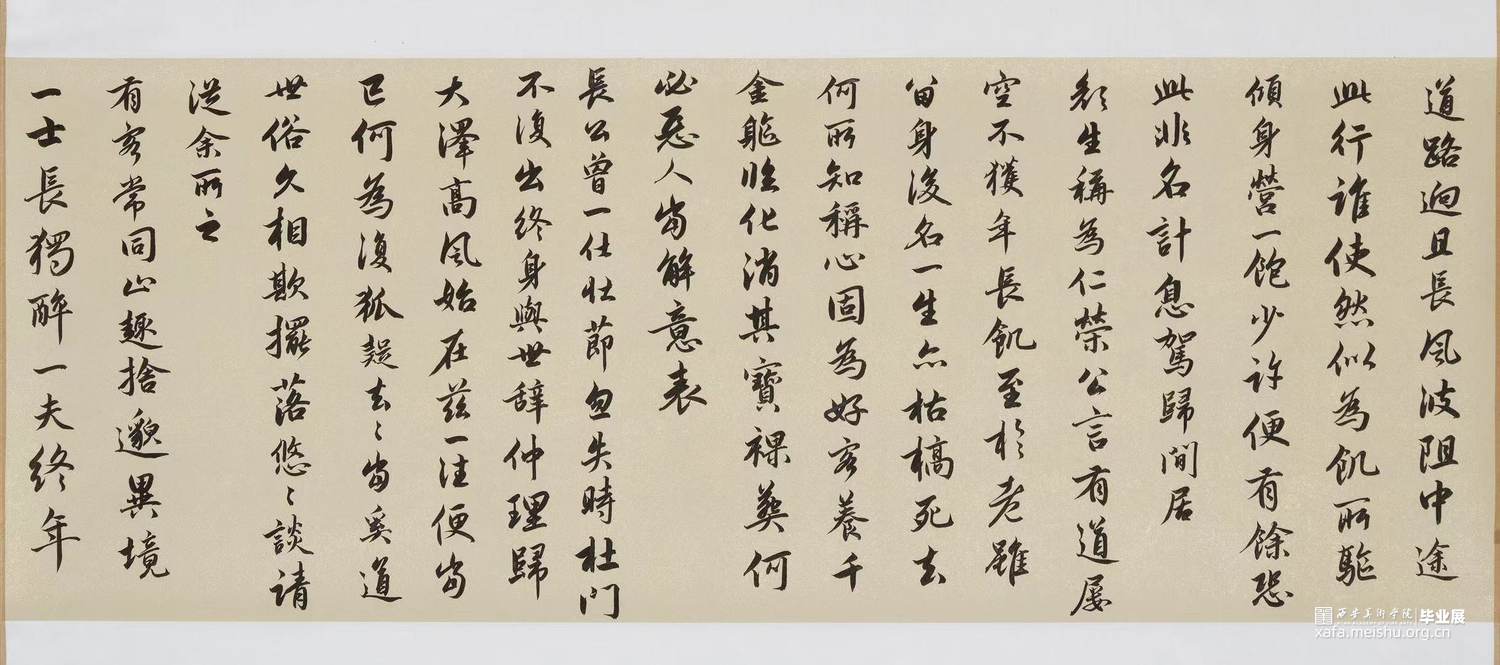 道路迥且長風波阻中途
此行誰使然似為飢所驅
傾身營一飽少許便有餘恐
此非名計息駕歸閒居
顏生稱為仁榮公言有道屢
空不獲年長飢至於老雖
留身後名一生亦枯槁死去
何所知稱心固為好客養千
金軀臨化消其寶裸葬何
必惡人當解意表
長公曾一仕壯節忽失時杜門
不復出終身與世辭仲理歸
大澤高風始在茲一往便當
已何為復狐疑去〻當奚道
世俗久相欺擺落悠〻談請
從余所之
有客常同止趣捨邈異境
一士長獨醉一夫終年
西安美術学院 毕业展
xafa.meishu.org.cn